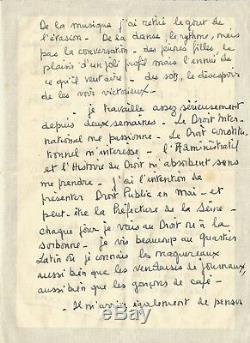 De la musique j'ai retiré le goût de
l'évasion - De la danse le rythme, mais
pas la conversation - des jeunes filles, le
plaisir d'un joli profil mais l'ennui de
ce qu'il veut dire - des sots, le désespoir
de les voir victorieux -
je travaille assez sérieusement
depuis deux semaines - Le Droit Inter-
national me passionne - Le Droit constitu-
tionnel m'intéresse - l'Administratif
et l'Histoire du Droit m'absorbent sans
me prendre - J'ai l'intention de
présenter Droit Public en Mai - et
peut-être la Préfecture de la Seine -
chaque jour je vais au Droit ou à la
Sorbonne - Je vis beaucoup au quartier
Latin où je connais les maquereaux
aussi bien que les vendeuses de journaux,
aussi bien que les garçons de café -
Il m'arrive également de penser